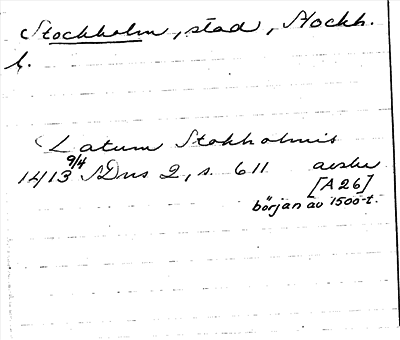 Stockholm, stad, Stockh.
l.
Datum Stokholmis
9/4
1413 SDns 2, s. 611 avskr
[A 26]
början av 1500-t.